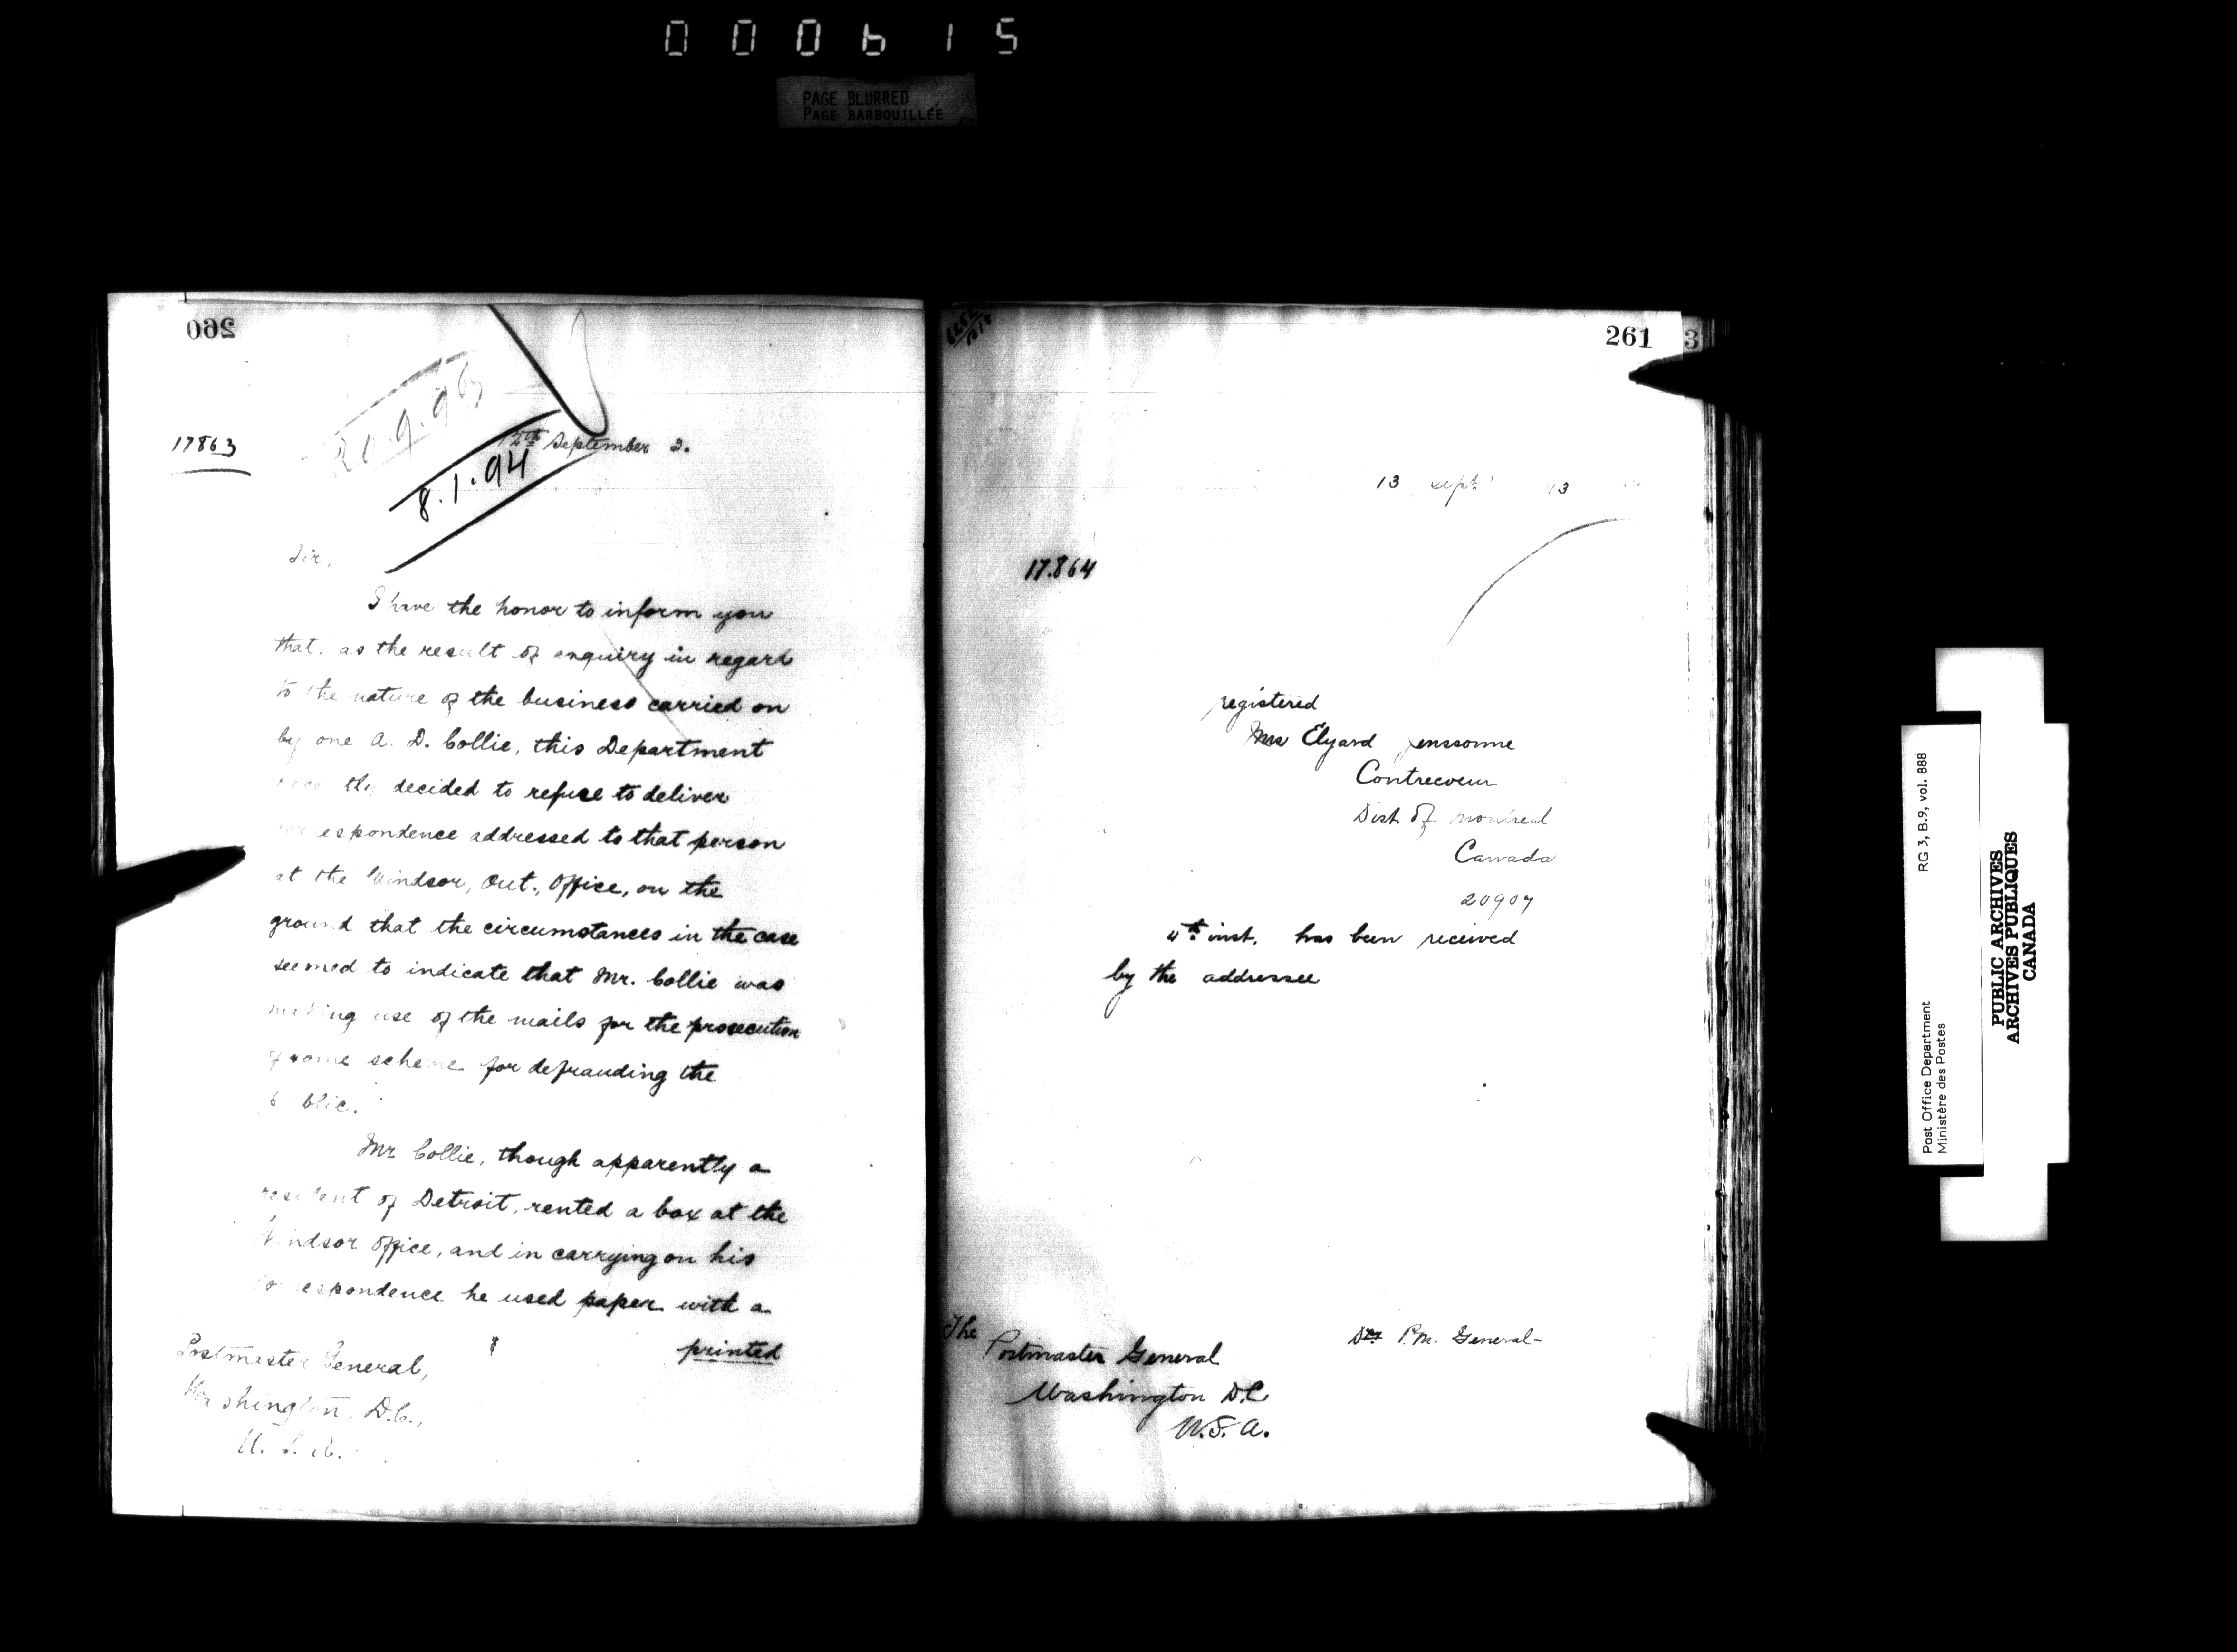 000615
PAGE BLURRED
PAGE BARBOUILLÉE
260
20.9.93
17863
12th September 3.
8.1.94
Sir,
I have the honor to inform you
that, as the result of enquiry in regard
to the nature of the business carried on
by one A. D. Collie, this Department
decided to refuse to deliver
espondence addressed to that person
at the Windsor, Ont., Office, on the
ground that the circumstances in the case
seemed to indicate that Mr. Collie was
making use of the mails for the prosecution
of some scheme for defrauding the
blic.
Mr. Collie, though apparently a
resident of Detroit, rented a box at the
Windsor Office, and in carrying on his
espondence he used paper with a
printed
Postmaster General,
Washington, D.C.,
U. S. A.
261
3
13 Sept. 93
17.864
registered
Mrs Elyard
Contrecoeur
Dist. of Montreal
Canada
20907
4th inst. has been received
by the addressee
Dty P.M. General-
The
Postmaster General
Washington D.C
U.S.A.
RG 3, B.9, vol. 888
Post Office Department
Ministère des Postes
PUBLIC ARCHIVES
ARCHIVES PUBLIQUES
CANADA